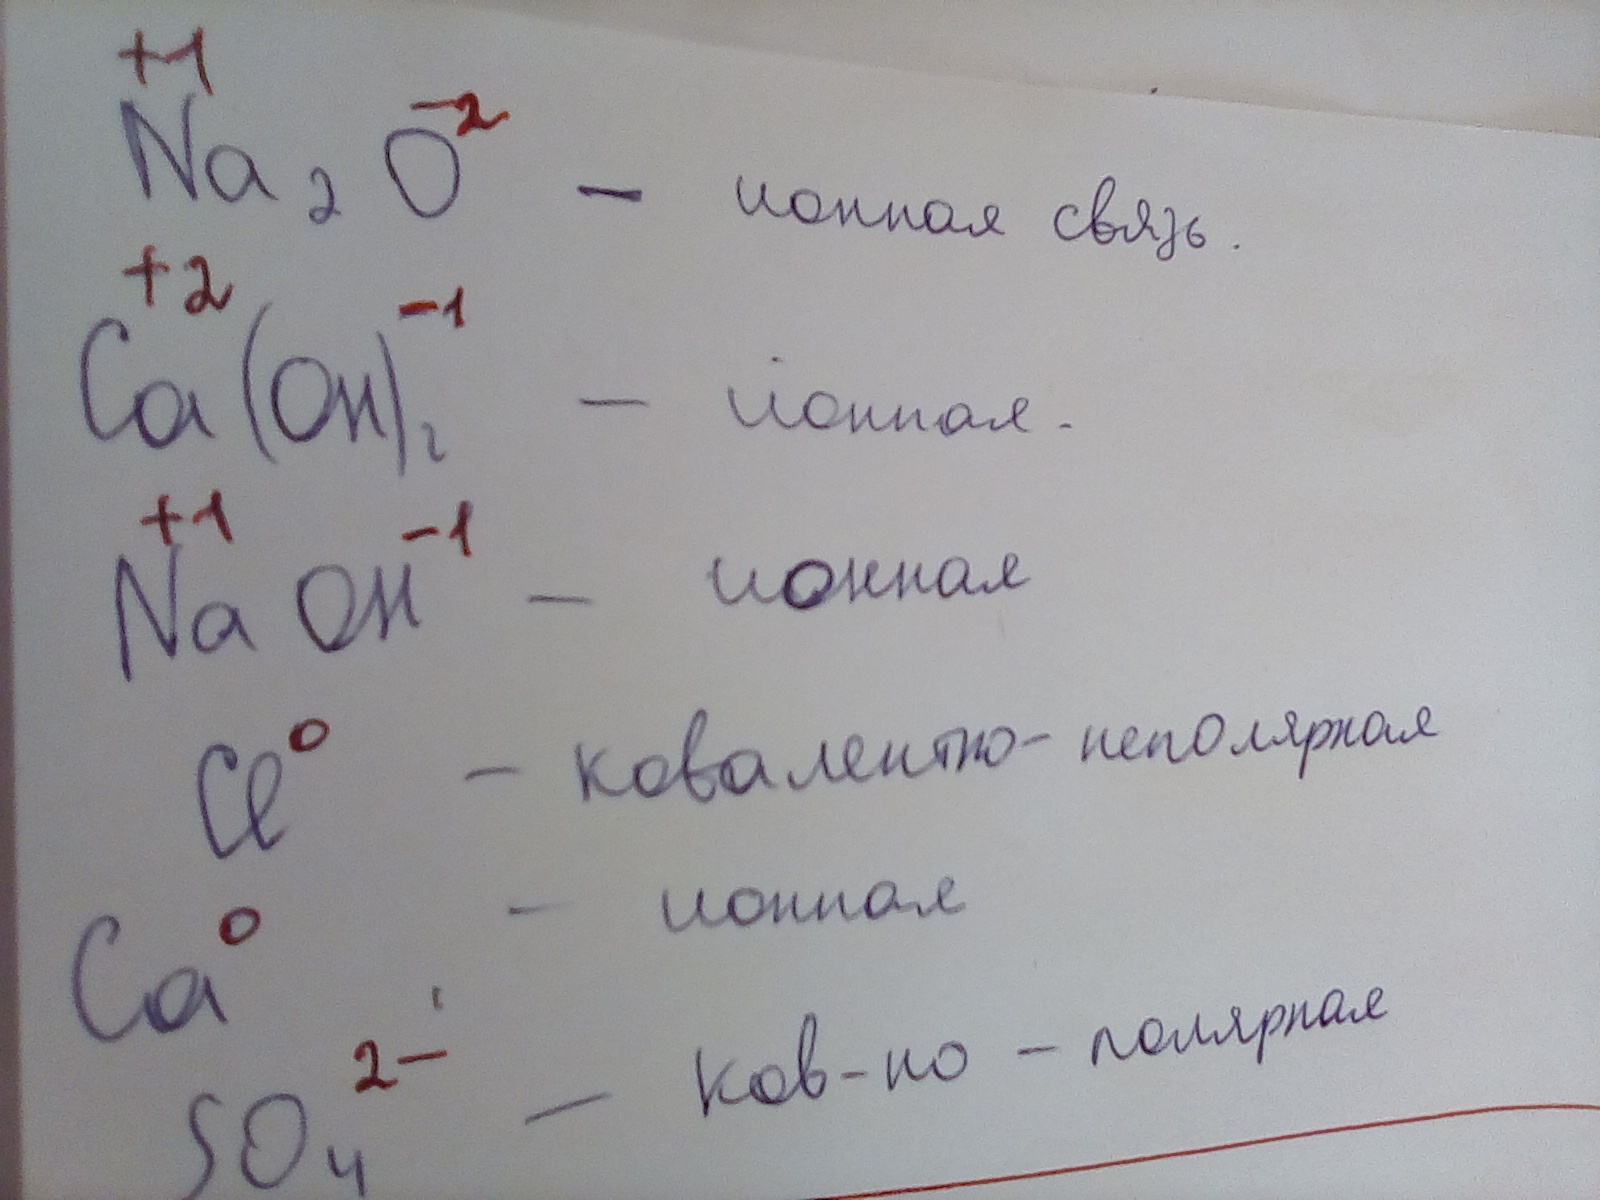 +1 -2
Na2O - ионная связь.
+2 -1
Ca(OH)2 - ионная.
+1 -1
NaOH - ионная
Cl0 - ковалентно-неполярная
Ca0 - ионная
SO4 2- - ков-но - полярная